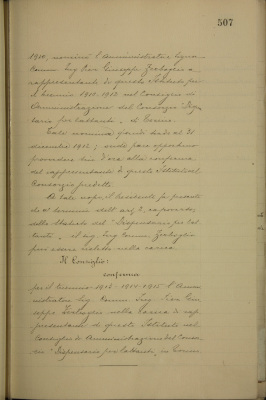 507
1910, nominò l'Amministratore Signor
Comm. Ing. Cav. Giuseppe
rappresentante di questo Istituto per
il triennio 1910-1912 nel Consiglio di
Amministrazione del Consorzio "Dispen
sario per lattanti" di Torino.
Tale nomina scade al 31
dicembre 1912; onde
provvedere fin d'ora alla conferma
del rappresentante di questo Istituto nel
Consorzio predetto.
A tale uopo, il Presidente fa presente
che ai termini dell'art. 2,
dello Statuto del "Dispensario per lat
tanti" il sig. Ing. Comm.
può essere rieletto nella carica.
Il Consiglio:
conferma
per il triennio 1913-1914-1915 l'Ammi
nistratore Sig. Comm. Ing. Cav. Giu
seppe nella carica di rap
presentante di questo Istituto nel
Consiglio di Amministrazione del Conso
rzio "Dispensario per lattanti" in Torino.